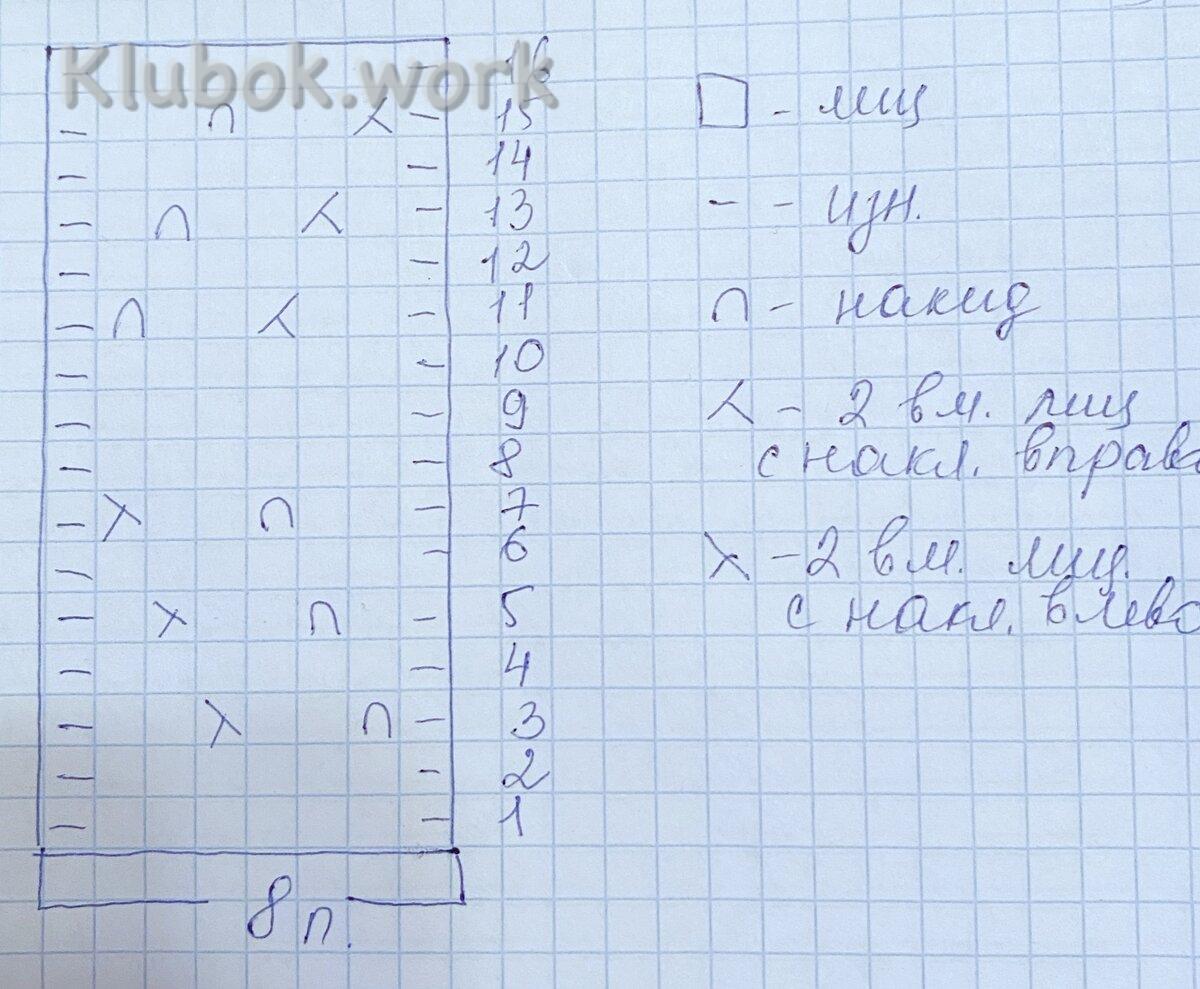 Klubok.work
16
15
14
13
12
11
10
9
8
7
6
5
4
3
2
1
8 п.
- лиц
- - изн.
- накид
- 2 вм. лиц
с накл. вправо
- 2 вм. лиц.
с накл. влево